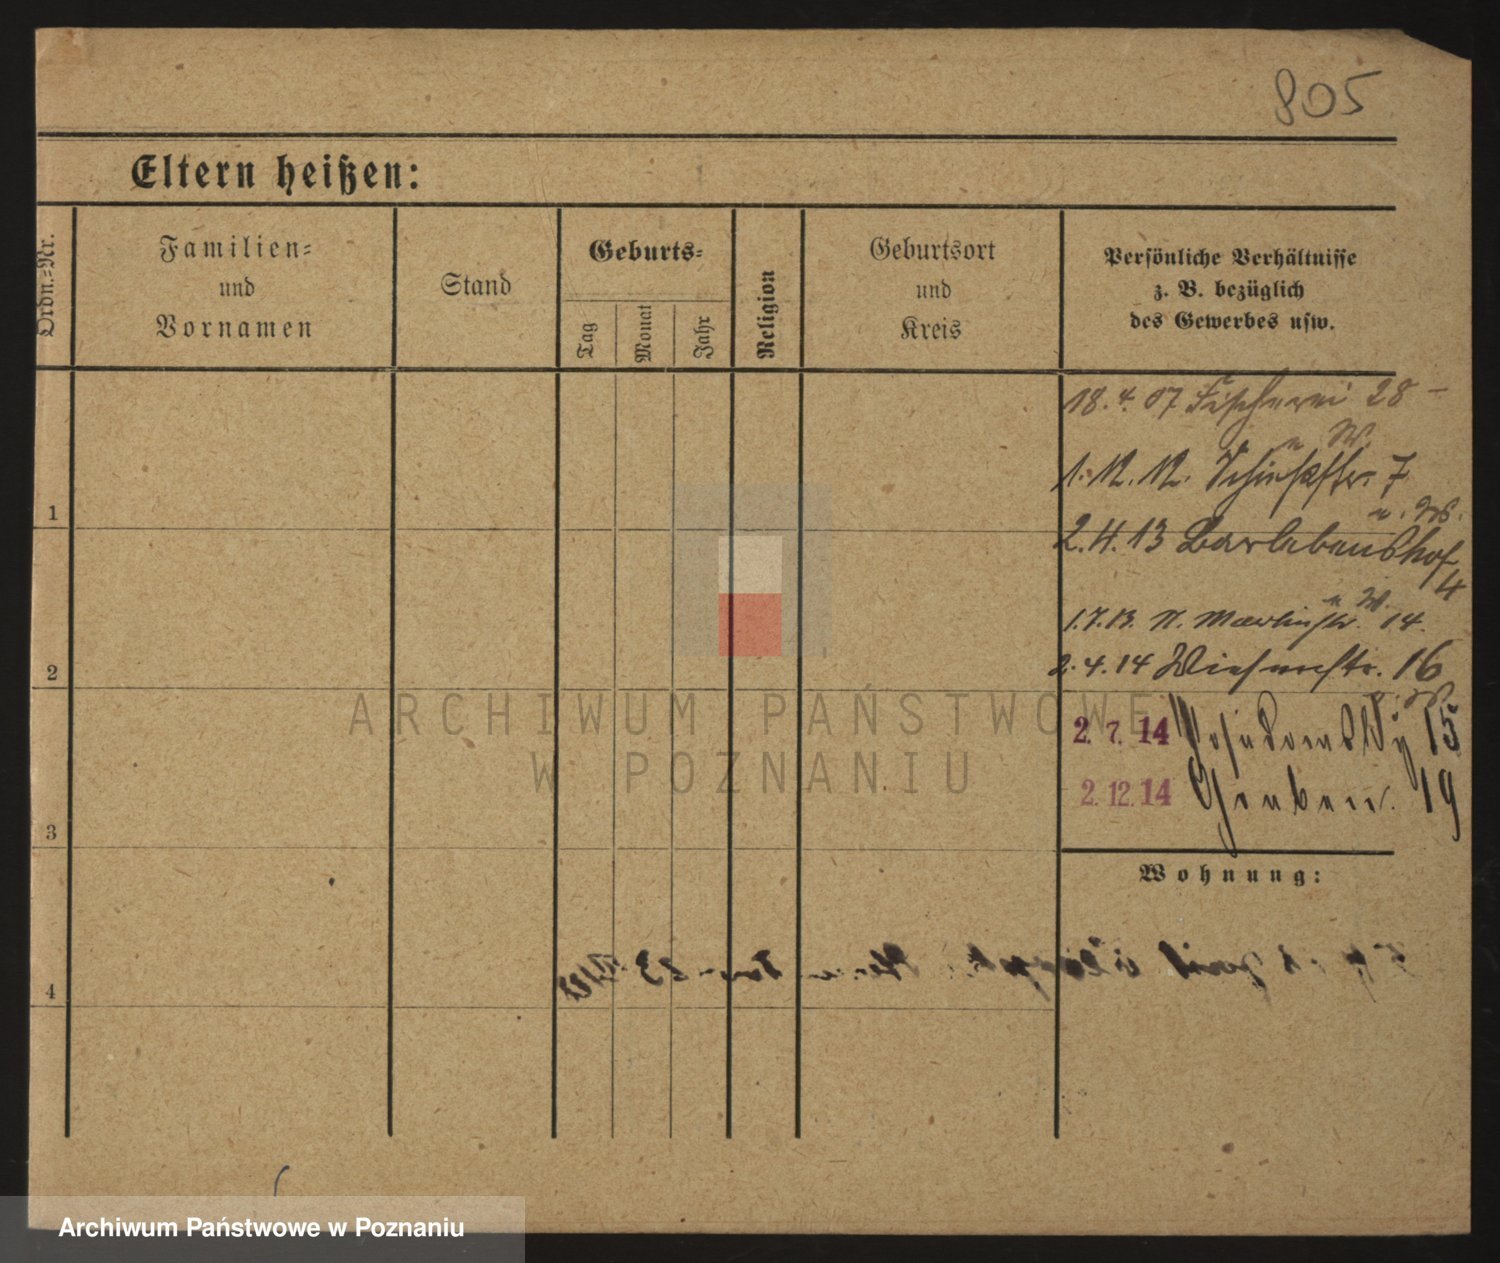 805
Eltern heißen:
Ordn.-Nr.
Familien-
und
Vornamen
Stand
Geburts-
Tag
Monat
Jahr
Religion
Geburtsort
und
Kreis
Persönliche Verhältnisse
z. B. bezüglich
des Gewerbes usw.
18. 4. 07 Fischerei 28 –
u W.
1. 12. 12. 7
1
u. W.
2. 4. 13 Barlebenshof
4
u W.
1. 7. 13. N. Martinstr. 14.
2. 4. 14 Wiesenstr. 16
2
W.
2. 7. 14 Posadowsky 15
2. 12. 14 Graben. 19
3
Wohnung:
4
ARCHIWUM PAŃSTWOWE
W POZNANIU
Archiwum Państwowe w Poznaniu